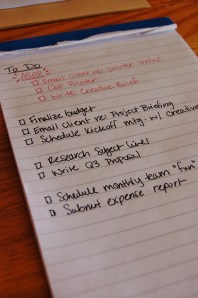 To Do
ASAP
□ Email Client re: printer status
□ Call Printer
□ Write Creative Brief
□ Finalize budget
□ Email Client re: Project Briefing
□ Schedule kickoff mtg. w/ Creative
□ Research Subject Lines
□ Write Q3 Proposal
□ Schedule monthly team "fun"
□ Submit expense report